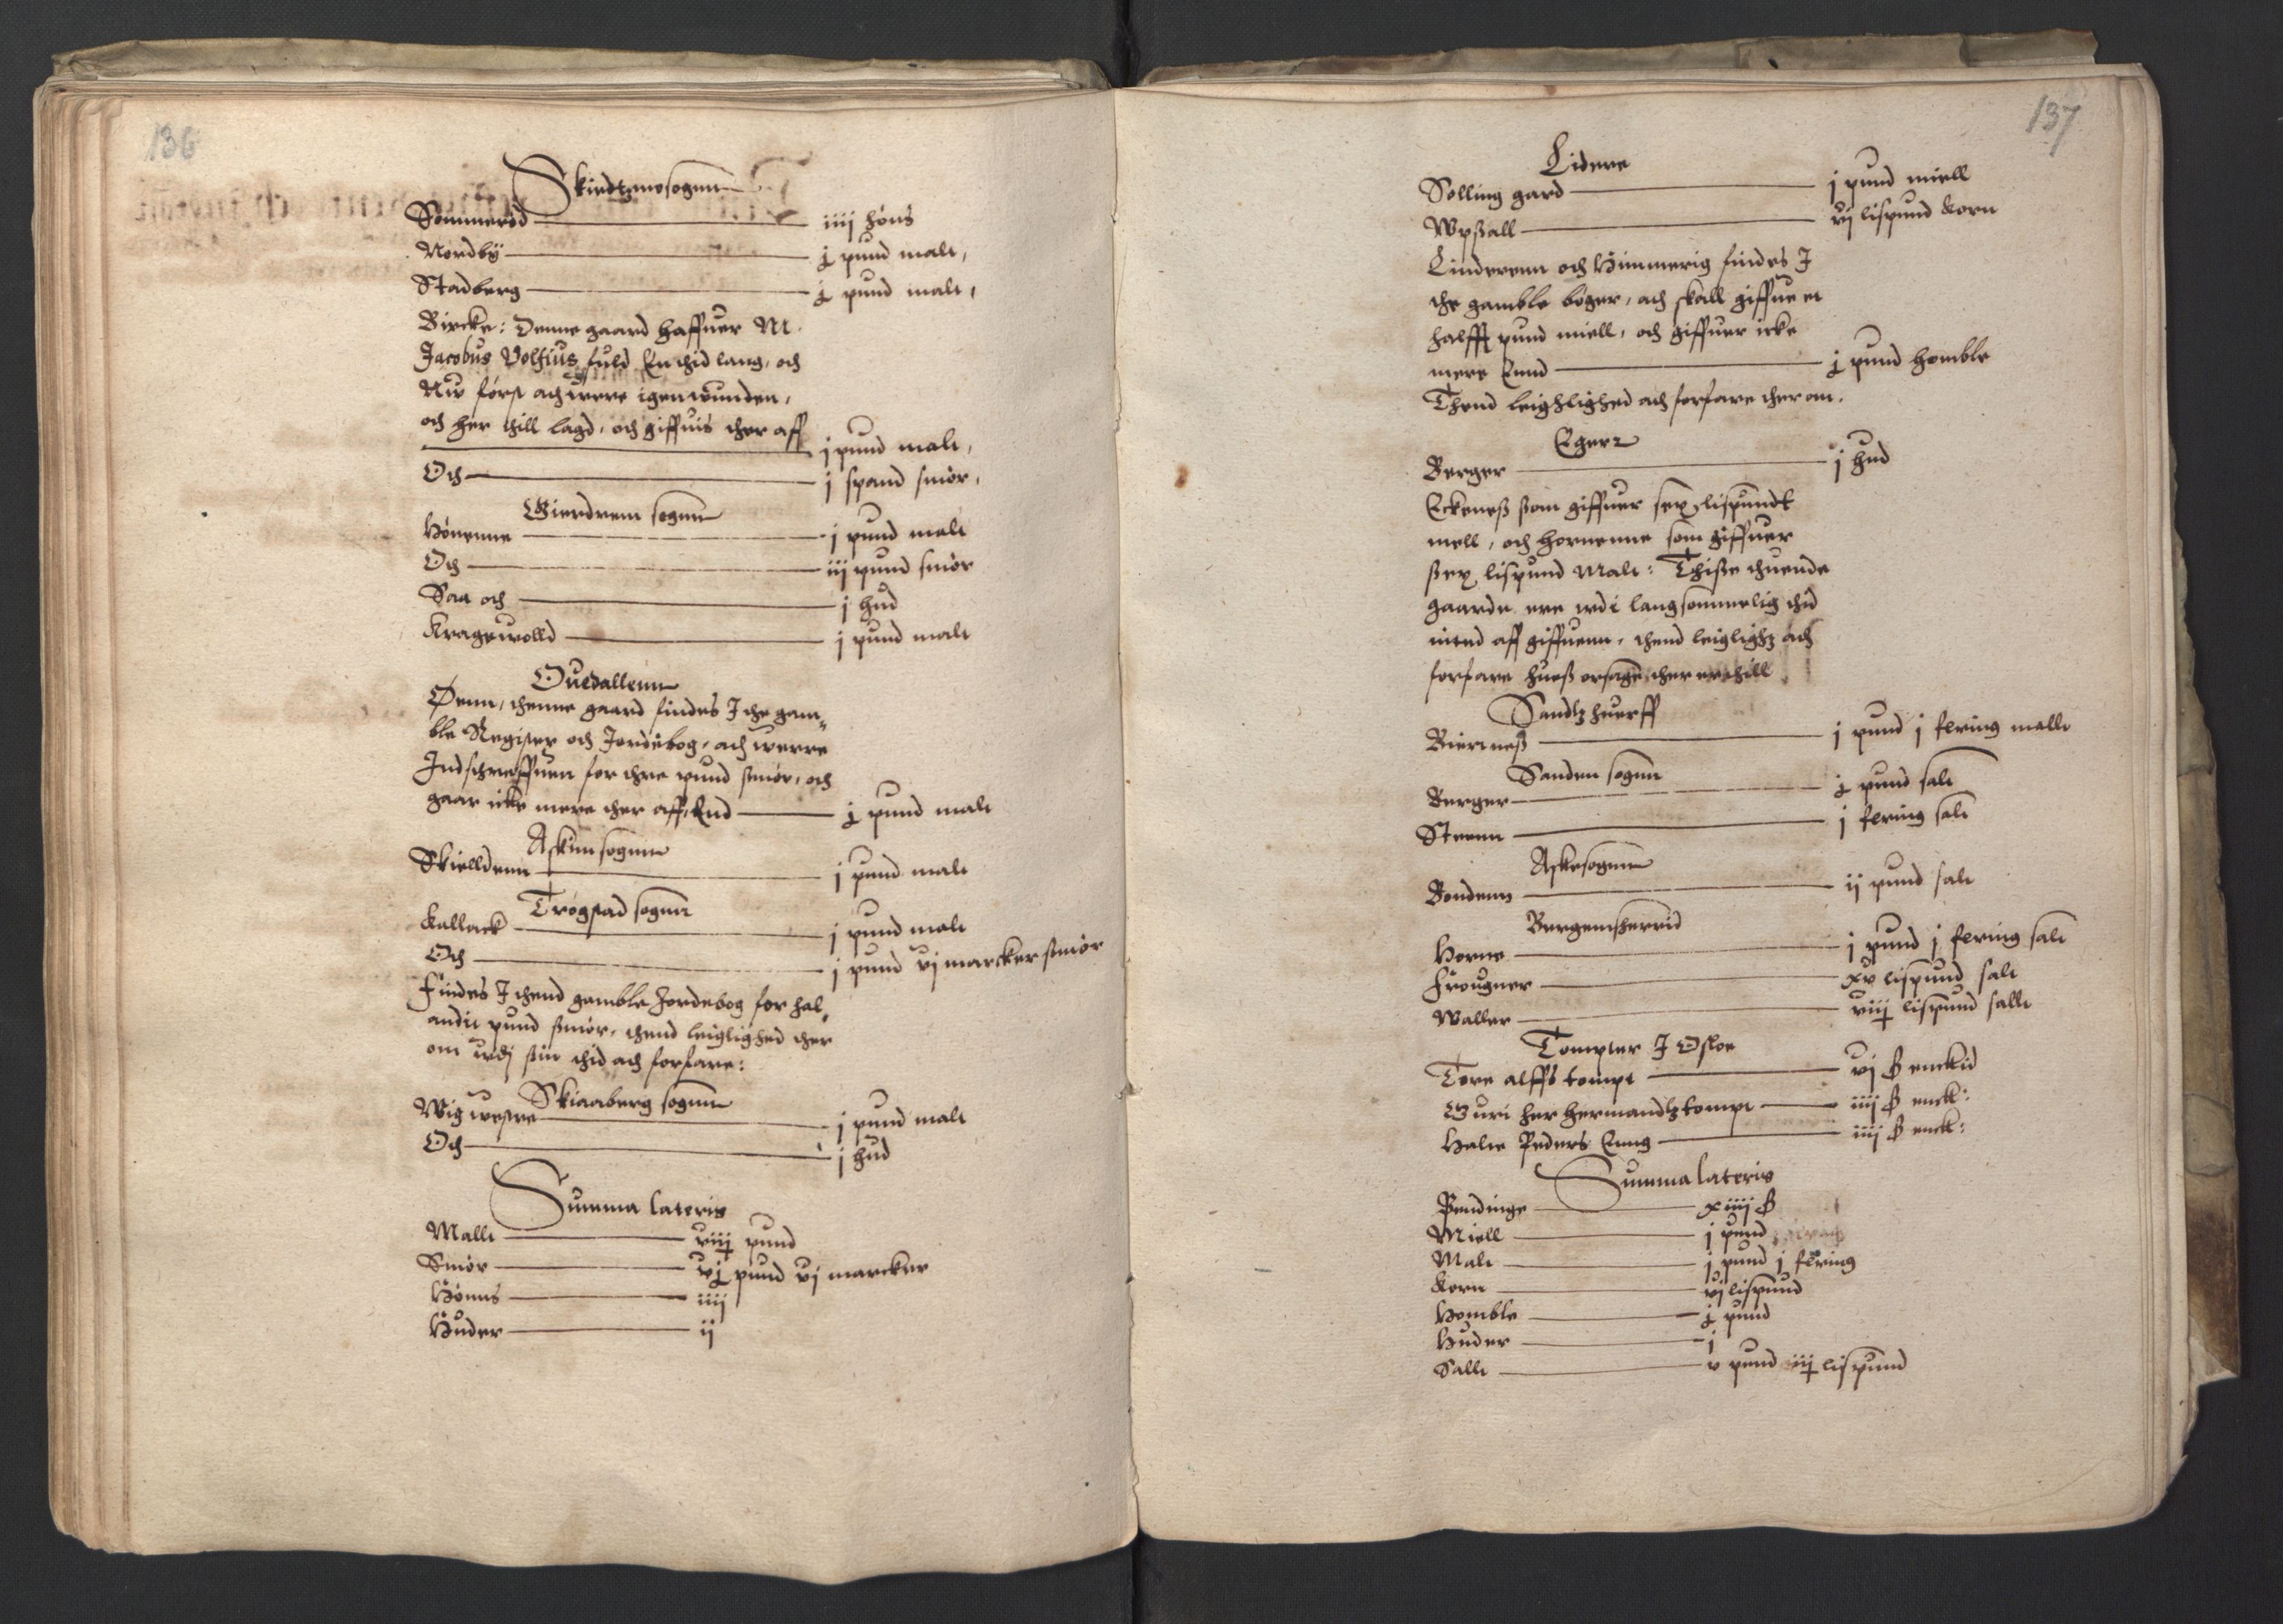 136
Skirdtzmosognn
Sommerød — iiij høns
Nordbÿ — j pund malt,
Stadberg — j pund malt,
Bircke: Denne gaard haffuer M.
Jacobus Volfius fuld En thid lang, och
Nw først ath were igen wunden,
och her thill lagd, och giffuis ther aff
— j pund malt,
Och — j spand smør,
Gierdrem sognn
Hónenne — j pund malt
Och — iij pund smør
Saa och — j hud
Kragewolld — j pund malt
Ouedallenn
Denn, thenne gaard findes J the gam„
ble Register och Jordebog, ath werre
Indschreffuen for thre pund smør, och
gaar icke mere ther aff, End — j pund malt
Askim sognn
Skielldenn — j pund malt
Trøgstad sognn
Kallack — j pund malt
Och — j pund vj marcker smør
Findes J thend gamble Jordebog for hal„
andit pund smør, thend leiglighed ther
om wdj sin thid ath forfare:
Skiaaberg sognn
Wig westre — j pund malt
Och — j hud
Summa lateris
Mallt — viij pund
Smør — vj pund vj marcker
Hønns — iiij
Huder — ij
137
Lidere
Solling gard — j pund miell
Wpsall — vj lispund korn
Linderenn och Himmerig findes J
the gamble bøger, ath skall giffue et
halfft pund miell, och giffuer icke
mere Eend — j pund homble
Thend leighlighed ath forfare ther om.
Egerr
Berger — j hud
Eckeness som giffuer sex lispundt
mell, och hornenne som giffuer
sex lispund Malt: Thisse thuende
gaarde ere wdi langsommelig thid
intid aff giffuenn, thend leiglighz ath
forfare huess orsage ther er thill
Sandtz huerff
Bierness — j pund j fering mallt
Sanden sognn
Berger — j pund salt
Steenn — j fering salt
Askesognn
Bondenn — ij pund salt
Bergemsherrid
Horne — j pund j fering salt
Frougner — xv lispund salt
Waller — viij lispund sallt
Tompter J Osloe
Tore alffs tompt — vj ß enckid
Guri her Hermandtz tompt — iiij ß enck:
Halte Peders Enng — iiij ß enck:
Summa lateris
Pendinge — xiiij ß
Miell — j pund
Malt — j pund j fering
Korn — vj lispund
Homble — j pund
Huder — j
Sallt — v pund iij lispund